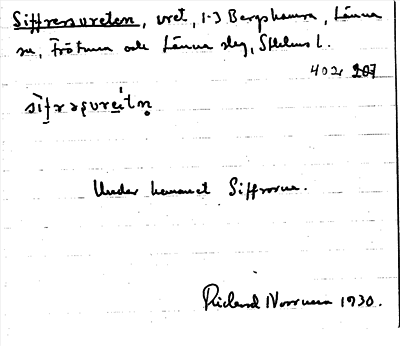 Siffrorsvreten, vret, 1-3 Bergshamra, Länna
sn, Frötuna och Länna skg, Sthlms l.
402 207
Under hemmanet Siffrorna.
Rickard Norrman 1930.